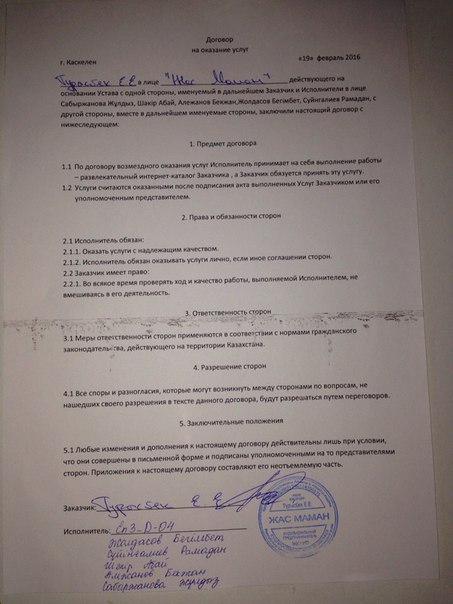 Договор
на оказание услуг
г. Каскелен «19» февраль 2016
Турысбек Е Е в лице "Жас Маман" действующего на
основании Устава с одной стороны, именуемый в дальнейшем Заказчик и Исполнители в лице
Сабыржанова Жулдыз, Шакір Абай, Алежанов Бекжан,Жолдасов Бегімбет, Суйнгалиев Рамадан, с
другой стороны, вместе в дальнейшем именуемые стороны, заключили настоящий договор с
нижеследующем:
1. Предмет договора
1.1 По договору возмездного оказания услуг Исполнитель принимает на себя выполнение работы
– развлекательный интернет-каталог Заказчика , а Заказчик обязуется принять эту услугу.
1.2 Услуги считаются оказанными после подписания акта выполненных Услуг Заказчиком или его
уполномоченным представителем.
2. Права и обязанности сторон
2.1 Исполнитель обязан:
2.1.1. Оказать услуги с надлежащим качеством.
2.1.2. Исполнитель обязан оказывать услуги лично, если иное соглашении сторон.
2.2 Заказчик имеет право:
2.2.1. Во всякое время проверять ход и качество работы, выполняемой Исполнителем, не
вмешиваясь в его деятельность.
3. Ответственность сторон
3.1 Меры ответственности сторон применяются в соответствии с нормами гражданского
законодательства, действующего на территории Казахстана.
4. Разрешение сторон
4.1 Все споры и разногласия, которые могут возникнуть между сторонами по вопросам, не
нашедших своего разрешения в тексте данного договора, будут разрешаться путем переговоров.
5. Заключительные положения
5.1 Любые изменения и дополнения к настоящему договору действительны лишь при условии,
что они совершены в письменной форме и подписаны уполномоченными на то представителями
сторон. Приложения к настоящему договору составляют его неотъемлемую часть.
Заказчик: Турысбек Е Е
Турысбек Е.Е.
ЖАС МАМАН
Исполнитель: СпЗ-D-04
Жолдасов Бегімбет
Суйнгалиев Рамадан
Шәкір Абай
Алжанов Бекжан
Сабыржанова Жулдоз